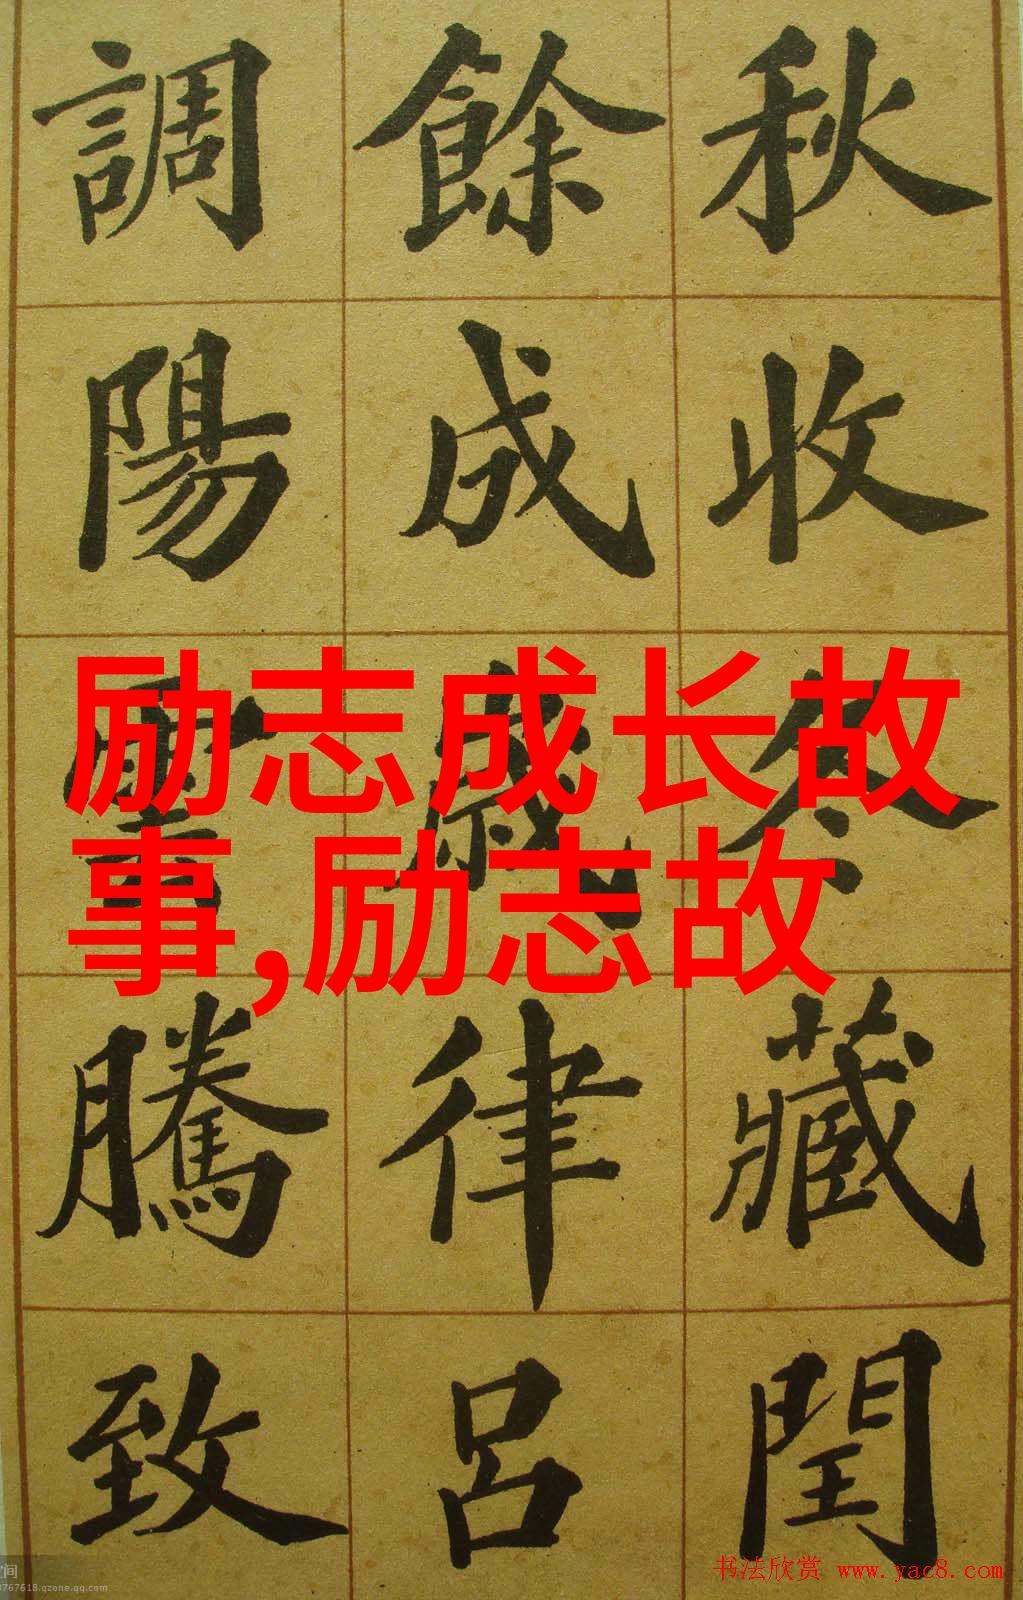 秋收冬藏閏
餘成歲律呂
調陽雲騰致
励志成长故
事,励志故
书法欣赏 www.yac8.com
767618.qzone.qq.com